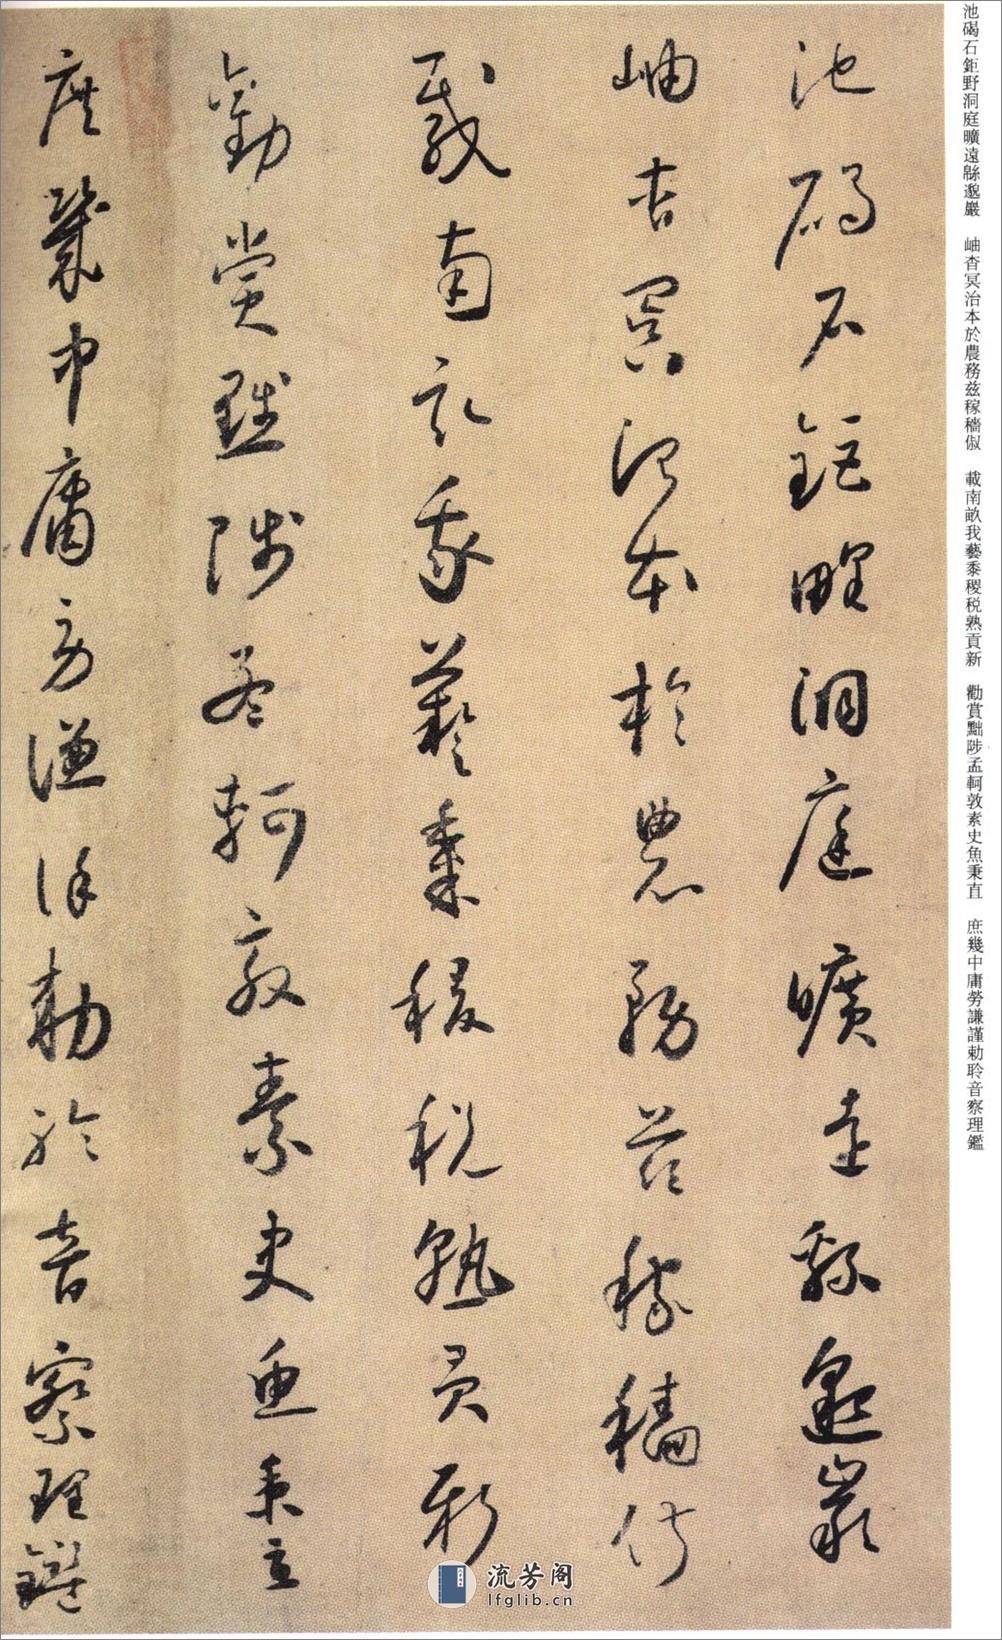 池碣石鉅野洞庭曠遠緜邈巖
岫杳冥治本於農務茲稼穡俶
載南畝我藝黍稷税熟貢新
勸賞黜陟孟軻敦素史魚秉直
庶幾中庸勞謙謹勅聆音察理鑑
池碣石鉅野洞庭曠遠緜邈巖　岫杳冥治本於農務兹稼穡俶　載南畝我藝黍稷税熟貢新　勸賞黜陟孟軻敦素史魚秉直　庶幾中庸勞謙謹勅聆音察理鑑
流芳阁
lfglib.cn